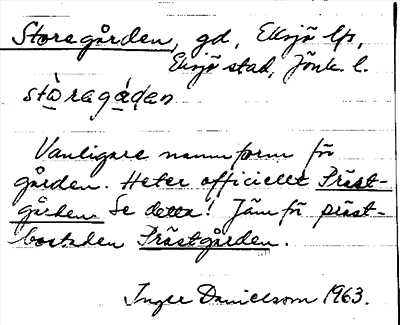 Storegården, gd, Eksjö lfs,
Eksjö stad, Jönk. l.
stòragá̱dan
Vanligare namnform för
gården. Heter officiellt Präst-
gården. Se detta! Jämför präst-
bostaden Prästgården.
Inger Danielsson 1963.